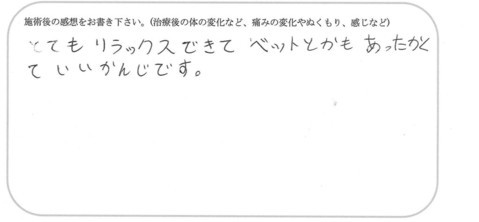 施術後の感想をお書き下さい。(治療後の体の変化など、痛みの変化やぬくもり、感じなど)
とても リラックスできて ベットとかも あったかく
て いいかんじです。